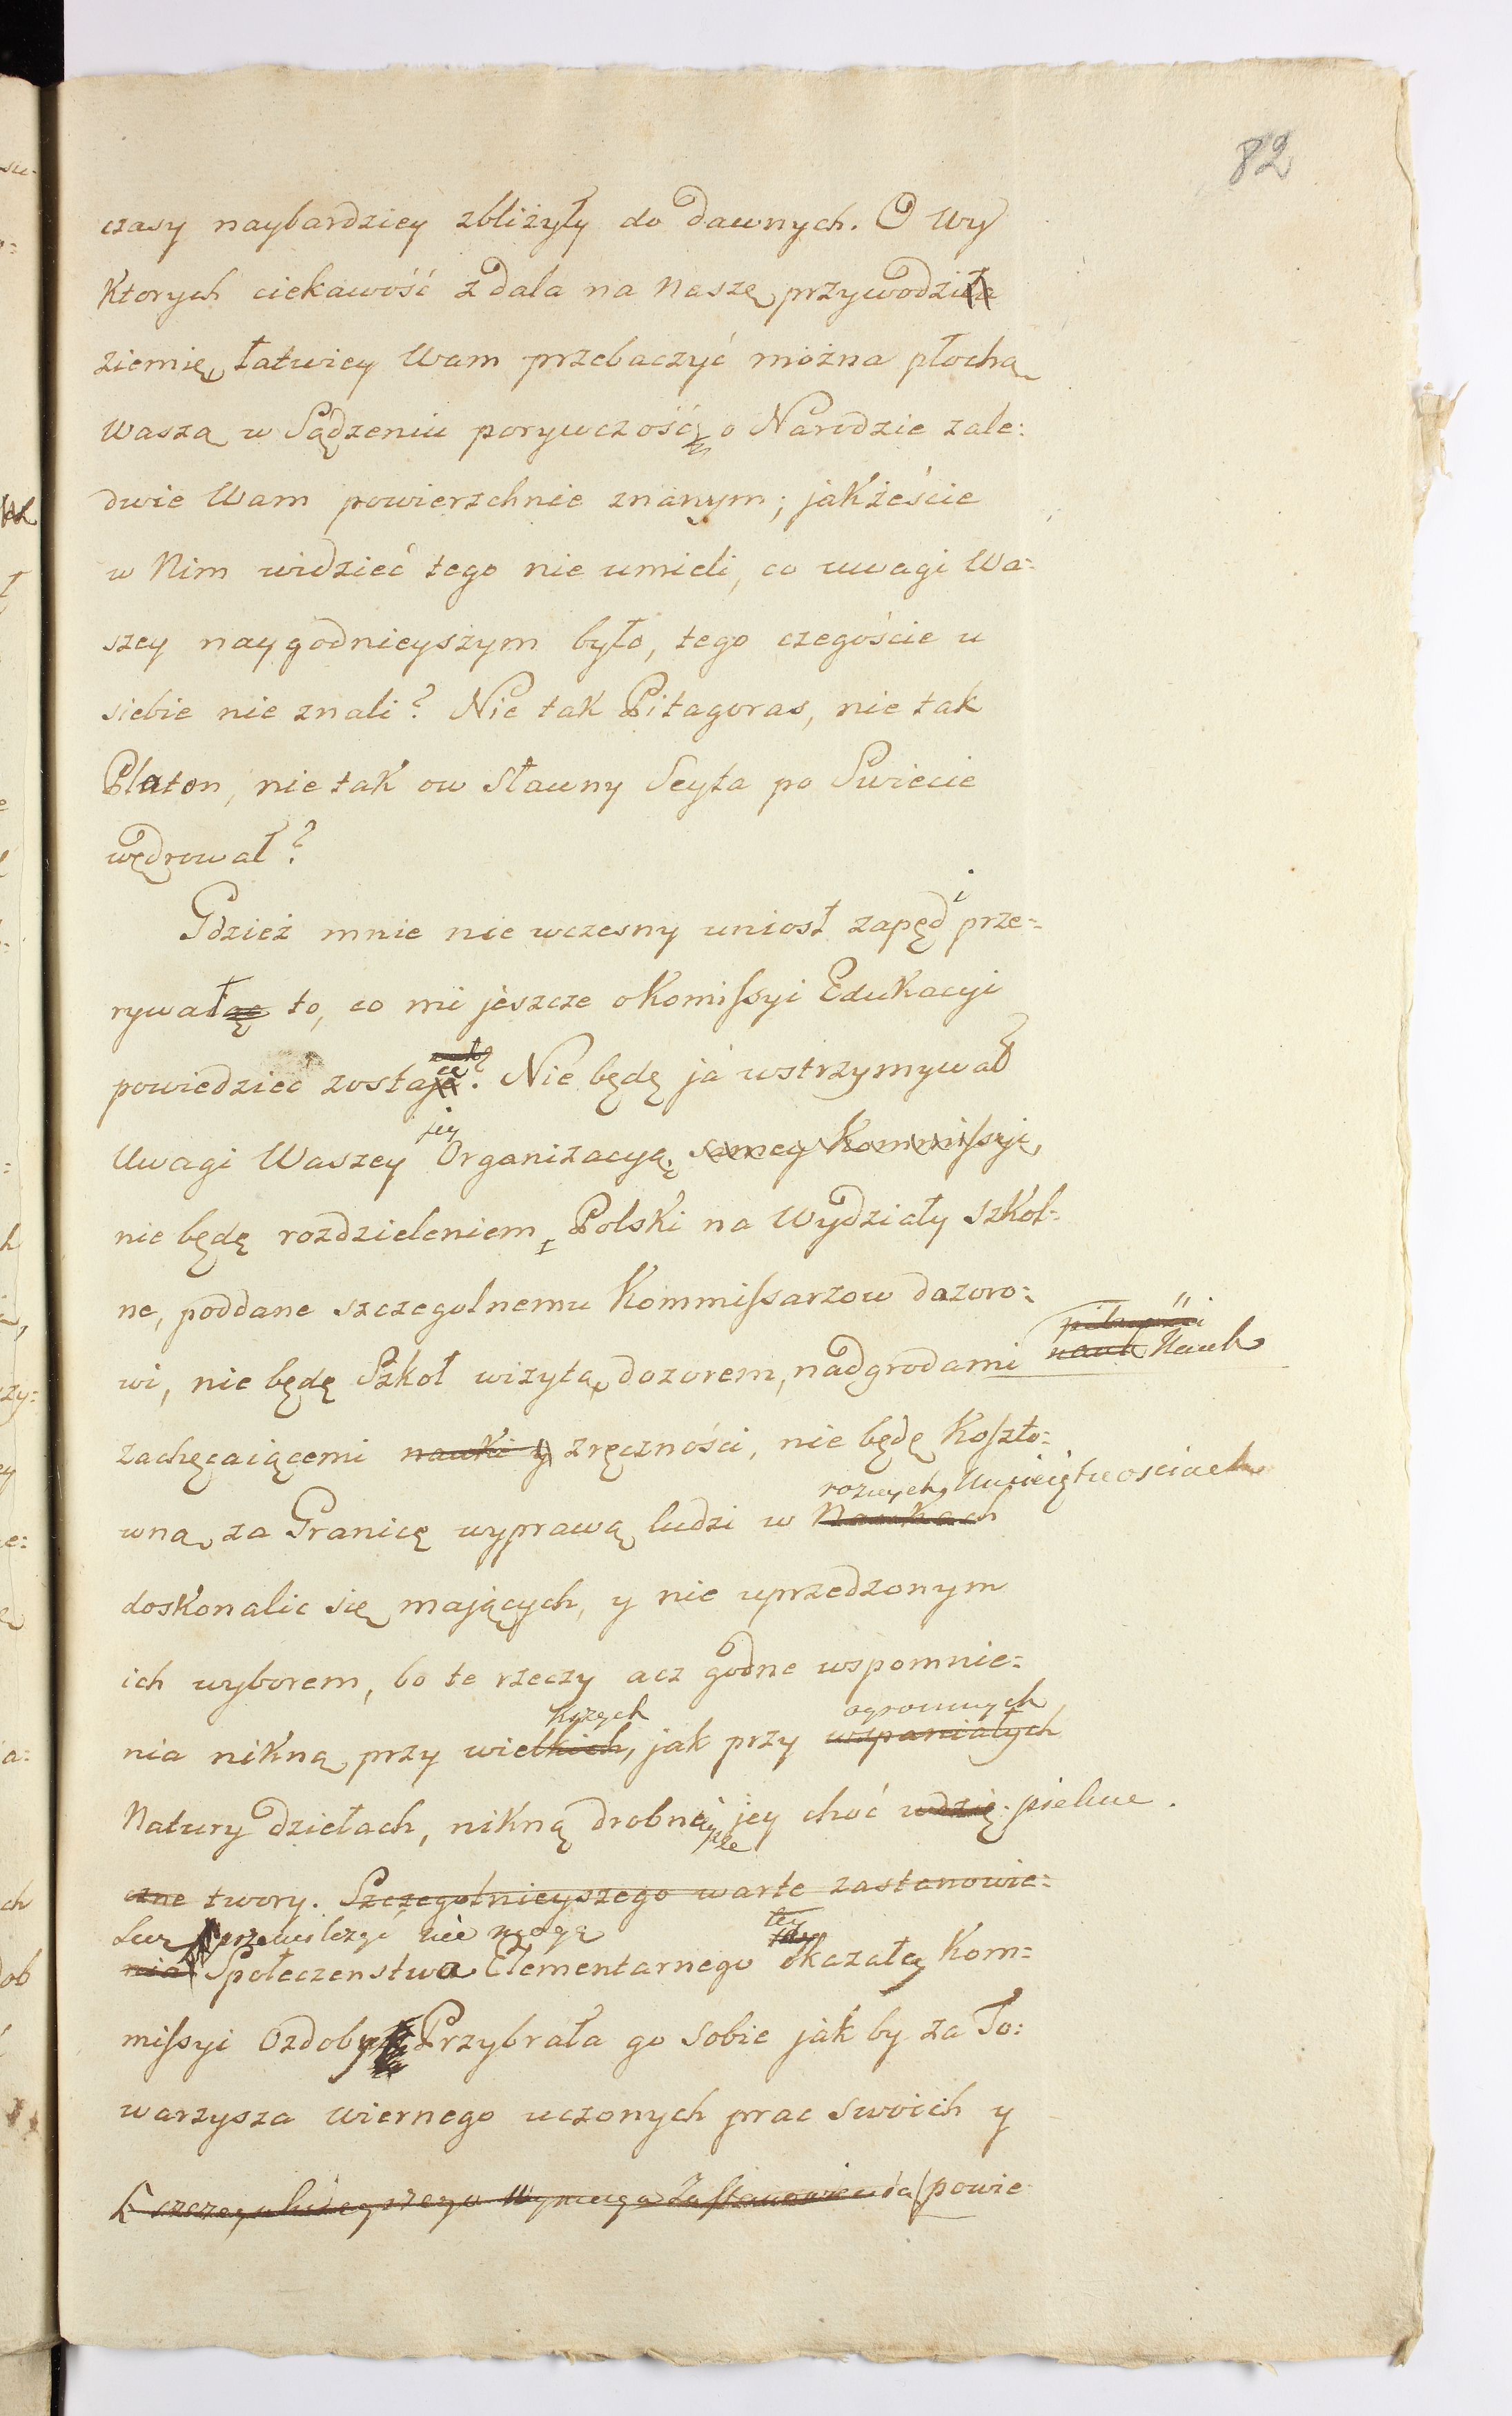 82
czasy naybardziey zbliżyły do dawnych. O Wy
Ktorych ciekawość z dala na naszę przywodziła
ziemię, łatwiey Wam przebaczyć można płochą
waszą w Sądzeniu porywczość o Narodzie zale:
dwie Wam powierzchnie znanym; jakżeście
w Nim widzieć tego nie umieli, co uwagi Wa:
szey naygodnieyszym było, tego czegoście u
siebie nie znali? Nie tak Pitagoras, nie tak
Platon, nie tak ow Sławny Scyta po Swiecie
wędrował?
i
Gdzież mnie nie wczesny uniosł zapęd prze=
rywał to, co mi jeszcze o Komissyi Edukacyi
powiedziec zostaje? Nie będę ja wstrzymywał
jey
Uwagi Waszey Organizacyą samey Kommissyi,
nie będę rozdzieleniem Polski na Wydziały szkol=
ne, poddane szczegolnemu Kommissarzow dozoro=
wi, nie będę Szkoł wizytą, dozorem, nadgrodami nauk Nauk
zachęcaiącemi nauki y zręczności, nie będę Koszto=
roznych Umieiętnosciach
wną za Granicę wyprawą ludzi w Naukach
doskonalic się mających, y nie uprzedzonym
ich wyborem, bo te rzeczy acz godne wspomnie=
kszych ogromnych
nia nikną przy wielkich, jak przy wspaniałych
Natury dziełach, nikną drobne jey choć wdzię: piekne.
czne twory. Szczegolnieyszego warte zastanowie=
Lecz przemilczyć nie mogę tey
nia Społeczenstwa Elementarnego okazałey Kom=
missyi Ozdoby Przybrała go sobie jak by za To:
warzysza wiernego uczonych prac swoich y
szczegulnieyszego Wymaga Zastanowienia powie